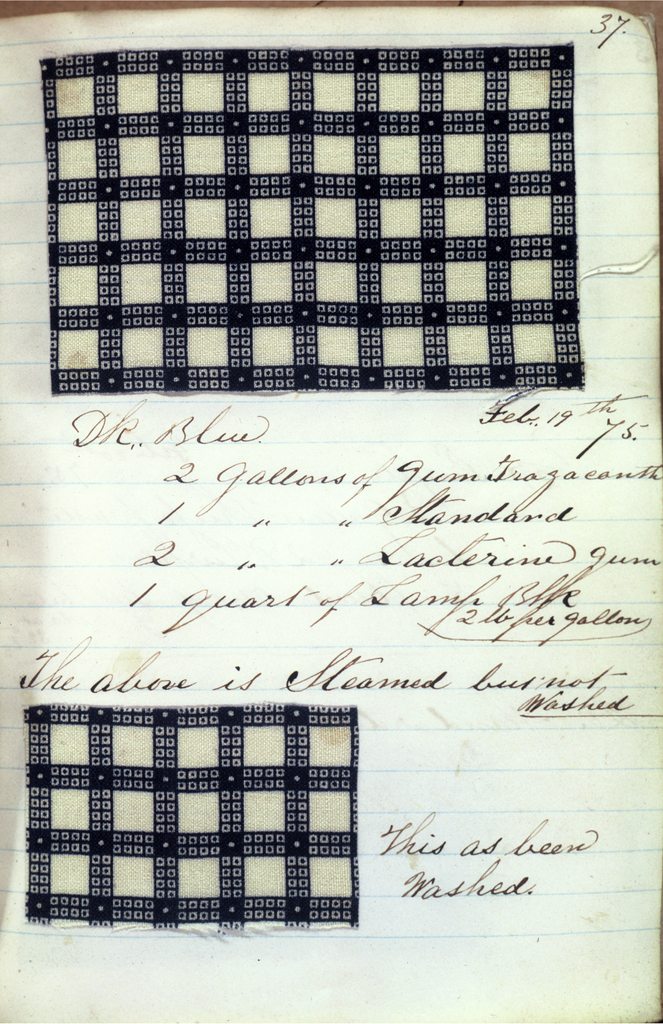 37.
Dk. Blue. Feb. 19th 75.
2 Gallons of Gum Tragacanth
1 " " Standard
2 " " Lacterine gum
1 quart of Lamp Blk
2 lb per gallon
The above is Steamed but not
Washed
This as been
Washed.